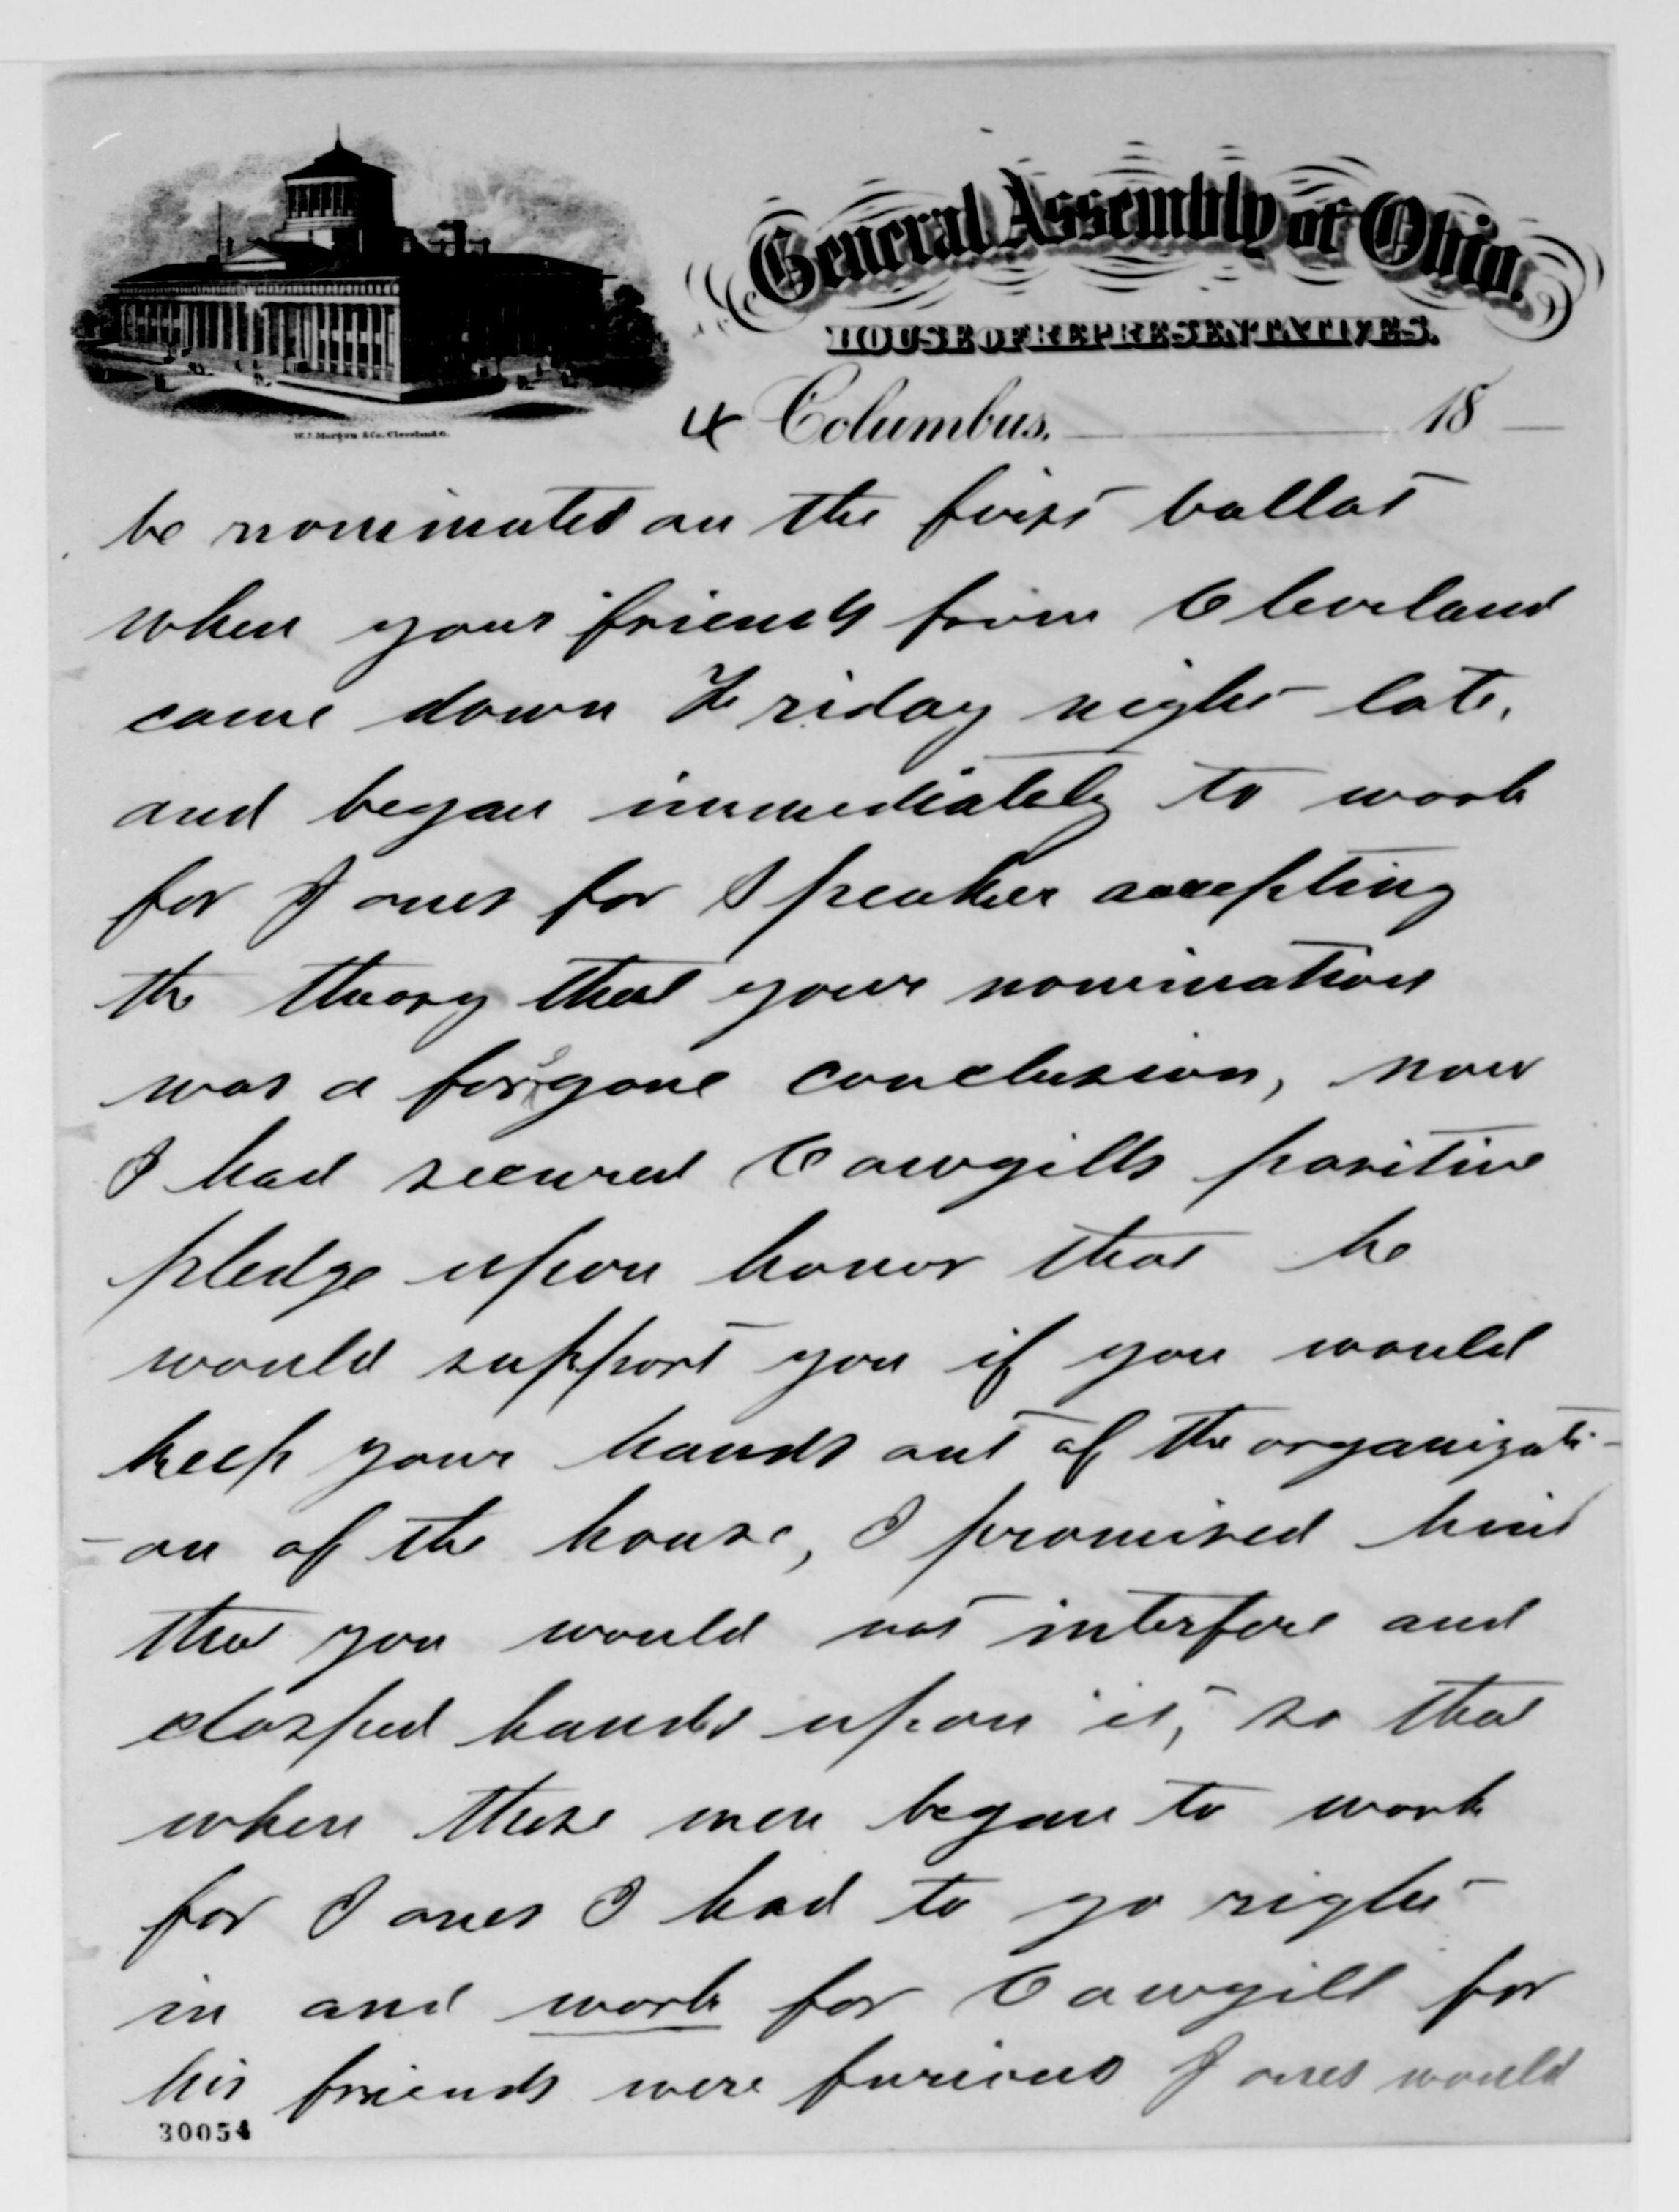 General Assembly of Ohio.
HOUSE OF REPRESENTATIVES.
W.J. Morgan & Co. Cleveland O.
4 Columbus, 18
be nominated on the first ballot
when your friends from Cleveland
came down Friday night late,
and began immediately to work
for Jones for Speaker accepting
the theory that your nomination
was a foregone conclusion, now
I had secured Cowgills positive
pledge upon honor that he
would support you if you would
keep your hands out of the organizati-
-on of the house, I promised him
that you would not interfere and
clasped hands upon it, so that
when these men began to work
for Jones I had to go right
in and work for Cowgill for
his friends were furious Jones would
30054